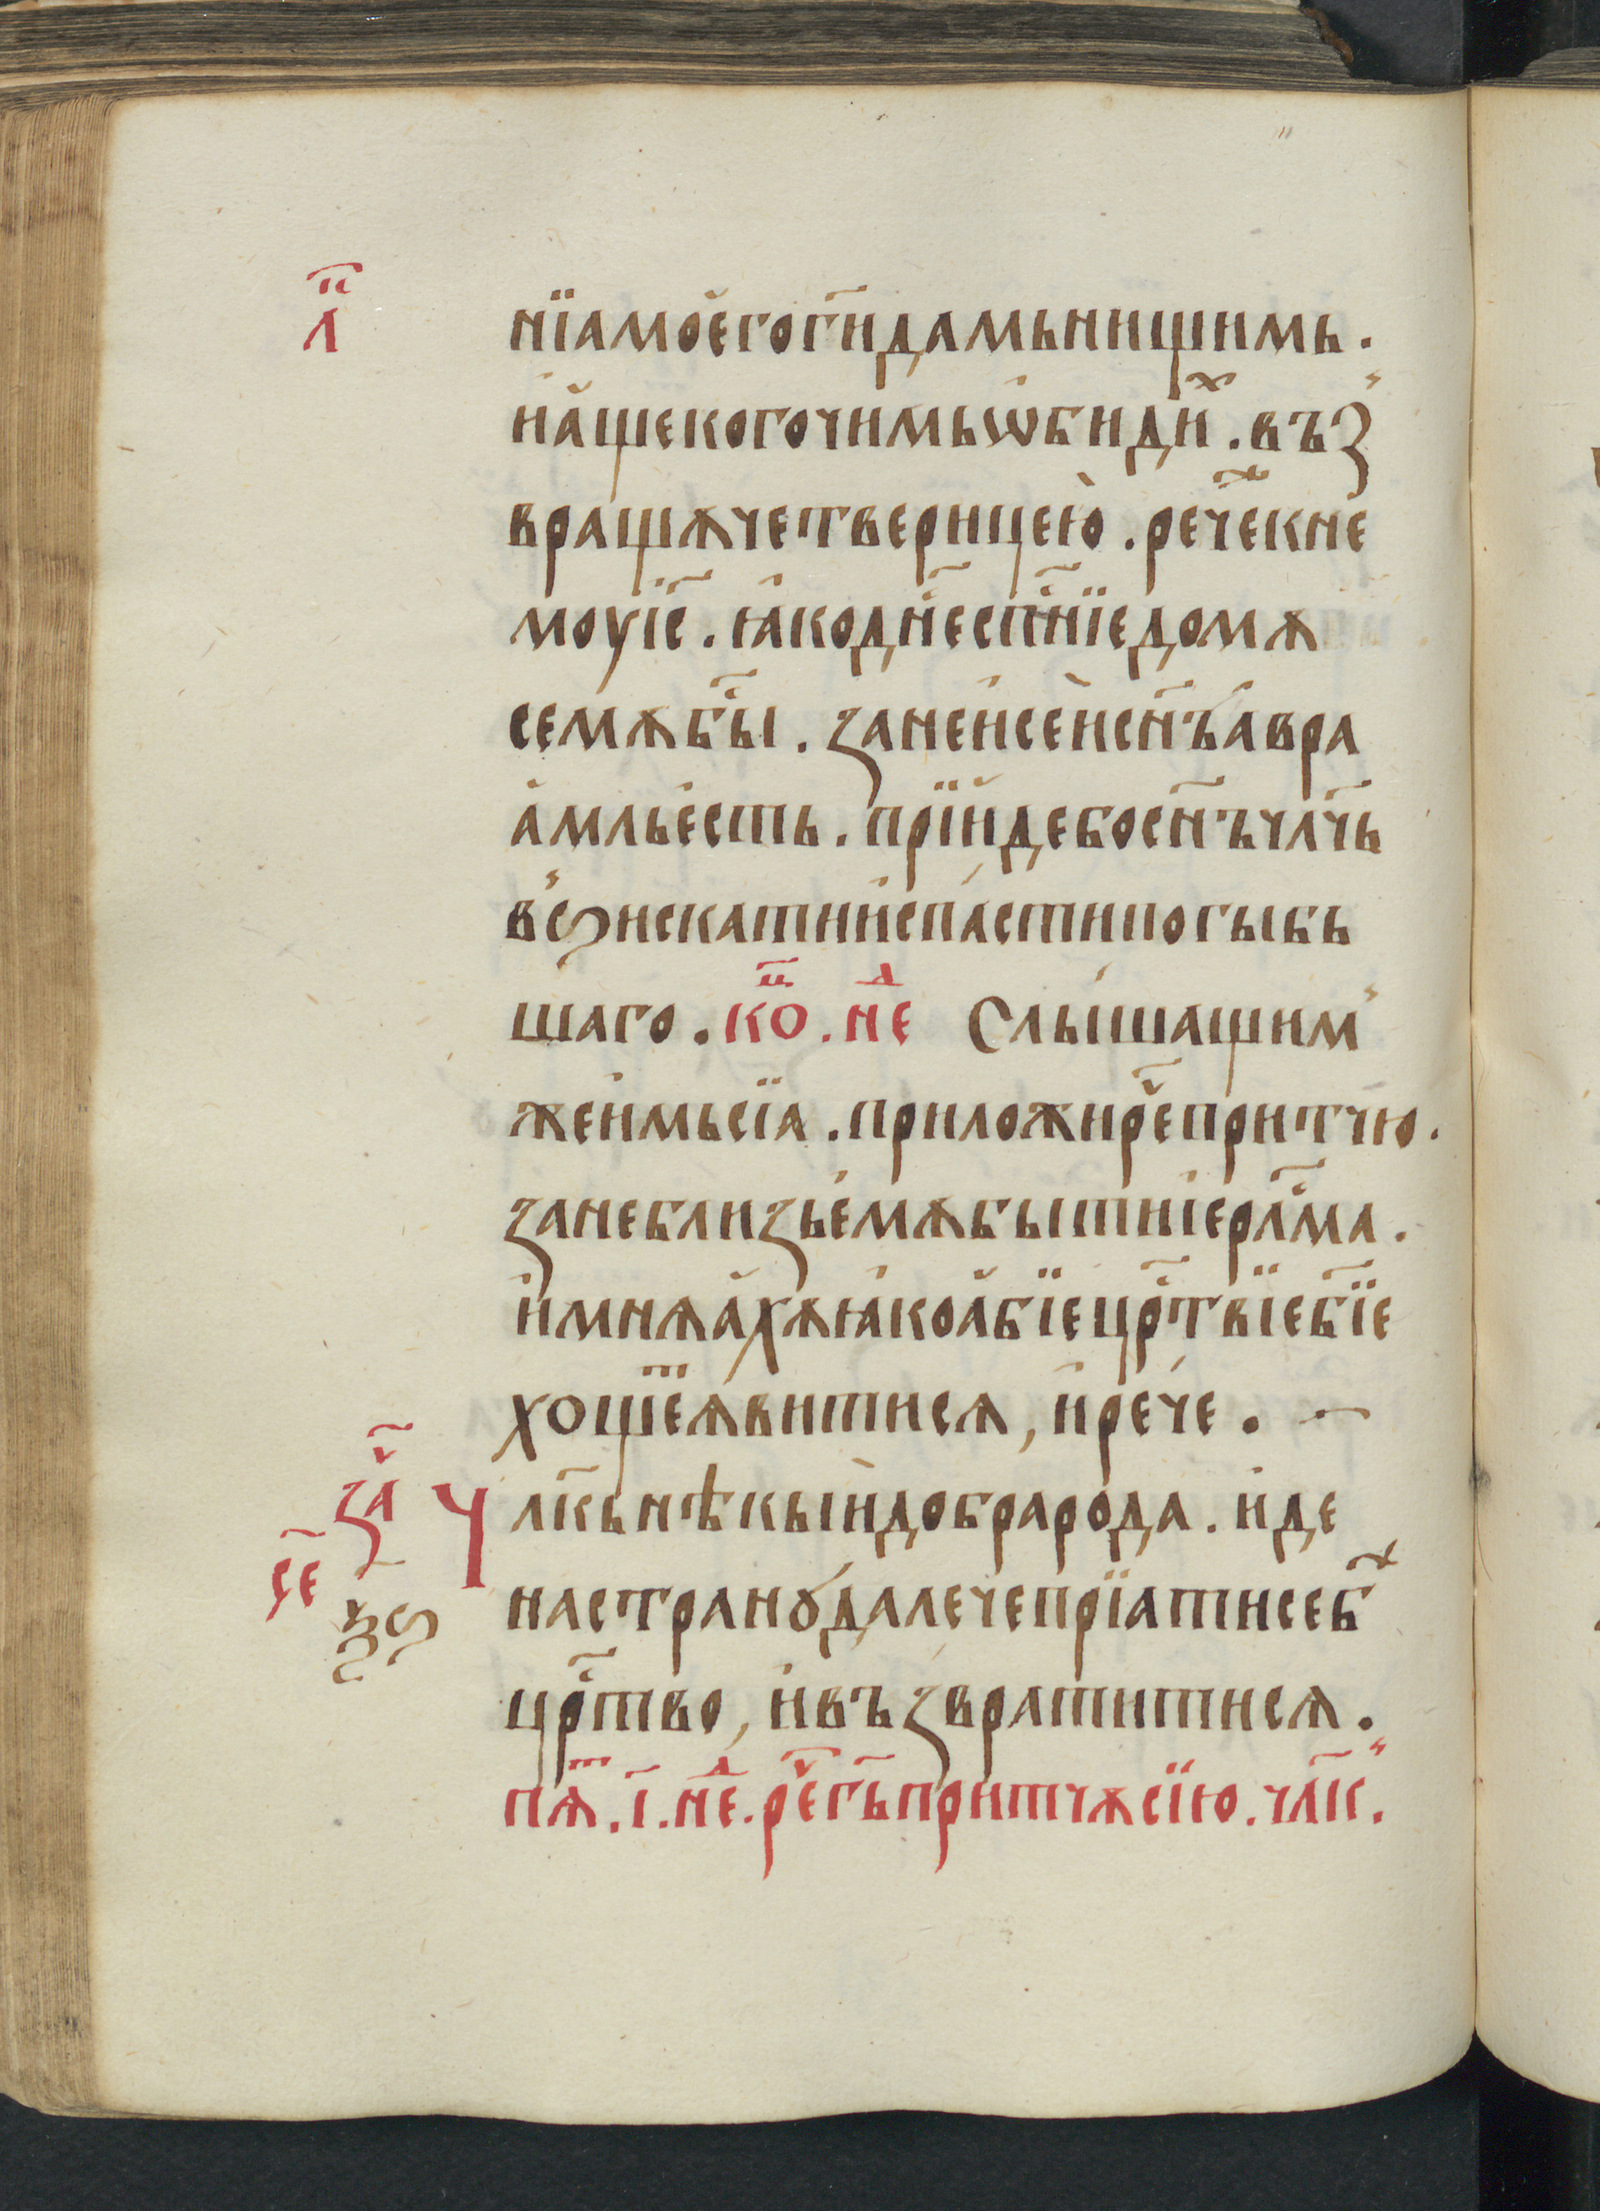 л҃
нїа моего г҃и дамь нищимь .
и аще кого чимь ѡбидих . въз
вращѫ четверицею . рече к не
моу і҃с . ꙗко дн҃е сп҃нїе домѫ
семѫ бы . зане и се и сн҃ъ авра
амль есть . прїиде бо сн҃ъ члч҃ь
вꙁискати и спасти погыбь
шаго . ко҃ц . не҃д Слышащим
же имь сїа . приложи ре҃ притчю .
зане близь емѫ быти іерл҃ма .
и мнѧахѫ ꙗко абїе цр҃твїе бж҃їе
хоще҃т ѧвитисѧ , и рече .
за҃ч Члк҃ь нѣкыи добра рода . иде
се҃ на странꙋ далече прїати себѣ
ѯ҃ѕ цр҃тво , и възвратитисѧ .
пѧ҃т . і҃ . не҃д . ре҃ г҃ь притчѫ сїю . члк҃ .